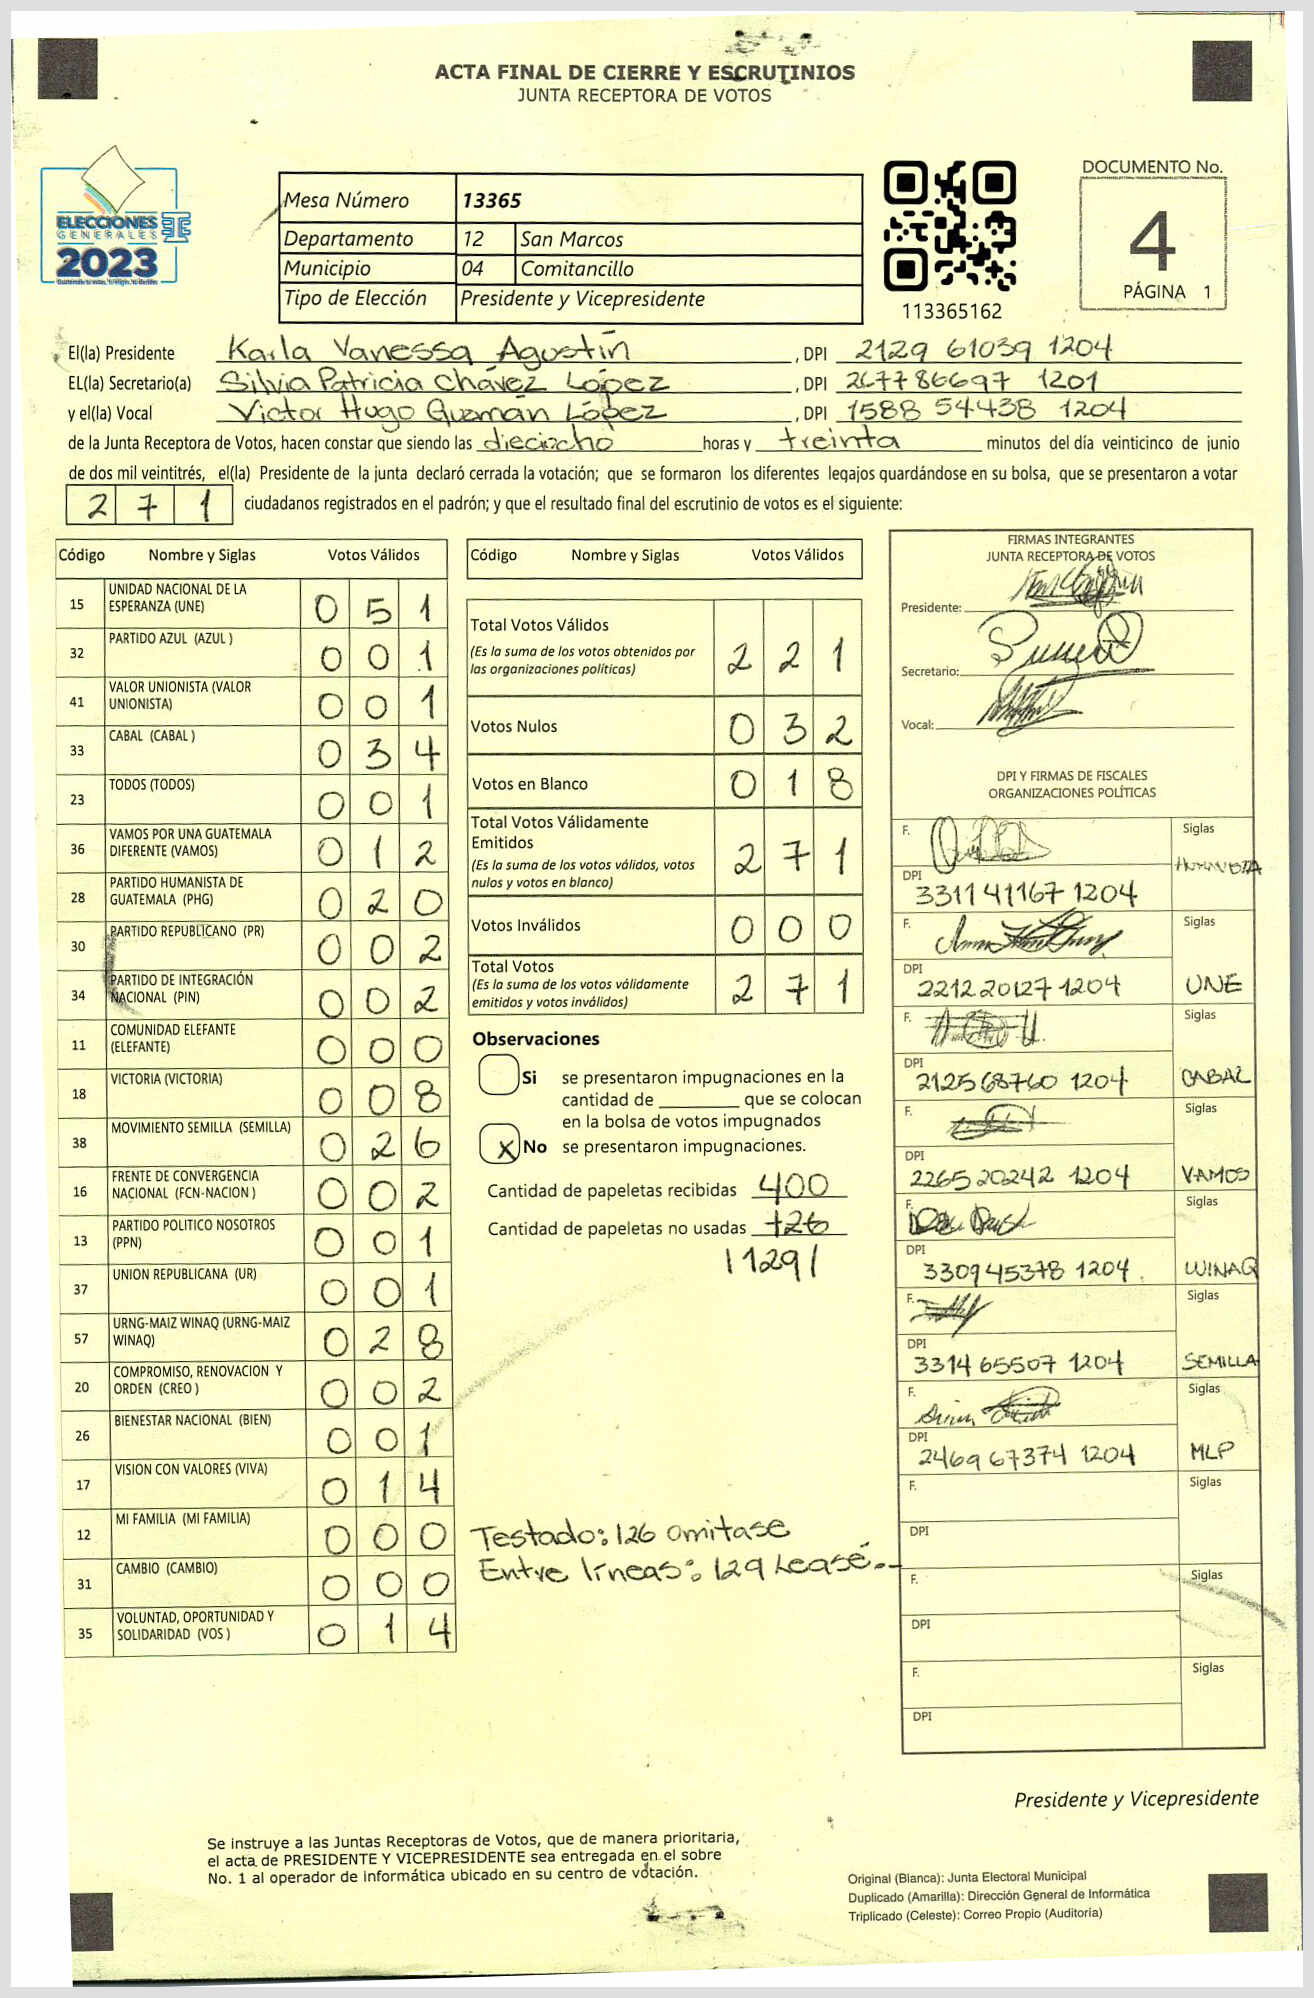 ACTA FINAL DE CIERRE Y ESCRUTINIOS
JUNTA RECEPTORA DE VOTOS
ELECCIONES
GENERALES
2023
Mesa Número 13365
Departamento 12 San Marcos
Municipio 04 Comitancillo
Tipo de Elección Presidente y Vicepresidente
113365162
DOCUMENTO No.
4
PÁGINA 1
El(la) Presidente Karla Vanessa Agustín , DPI 2129 61039 1204
EL(la) Secretario(a) Silvia Patricia Chávez López , DPI 2677 86697 1201
y el(la) Vocal Victor Hugo Guzmán López , DPI 1588 54438 1204
de la Junta Receptora de Votos, hacen constar que siendo las dieciocho horas y treinta minutos del día veinticinco de junio
de dos mil veintitrés, el(la) Presidente de la junta declaró cerrada la votación; que se formaron los diferentes legajos quardándose en su bolsa, que se presentaron a votar
2 7 1 ciudadanos registrados en el padrón; y que el resultado final del escrutinio de votos es el siguiente:
Código Nombre y Siglas Votos Válidos
15 UNIDAD NACIONAL DE LA ESPERANZA (UNE) 0 5 1
32 PARTIDO AZUL (AZUL ) 0 0 1
41 VALOR UNIONISTA (VALOR UNIONISTA) 0 0 1
33 CABAL (CABAL ) 0 3 4
23 TODOS (TODOS) 0 0 1
36 VAMOS POR UNA GUATEMALA DIFERENTE (VAMOS) 0 1 2
28 PARTIDO HUMANISTA DE GUATEMALA (PHG) 0 2 0
30 PARTIDO REPUBLICANO (PR) 0 0 2
34 PARTIDO DE INTEGRACIÓN NACIONAL (PIN) 0 0 2
11 COMUNIDAD ELEFANTE (ELEFANTE) 0 0 0
18 VICTORIA (VICTORIA) 0 0 8
38 MOVIMIENTO SEMILLA (SEMILLA) 0 2 6
16 FRENTE DE CONVERGENCIA NACIONAL (FCN-NACION ) 0 0 2
13 PARTIDO POLITICO NOSOTROS (PPN) 0 0 1
37 UNION REPUBLICANA (UR) 0 0 1
57 URNG-MAIZ WINAQ (URNG-MAIZ WINAQ) 0 2 8
20 COMPROMISO, RENOVACION Y ORDEN (CREO ) 0 0 2
26 BIENESTAR NACIONAL (BIEN) 0 0 1
17 VISION CON VALORES (VIVA) 0 1 4
12 MI FAMILIA (MI FAMILIA) 0 0 0
31 CAMBIO (CAMBIO) 0 0 0
35 VOLUNTAD, OPORTUNIDAD Y SOLIDARIDAD (VOS ) 0 1 4
Código Nombre y Siglas Votos Válidos
Total Votos Válidos 2 2 1
(Es la suma de los votos obtenidos por
las organizaciones políticas)
Votos Nulos 0 3 2
Votos en Blanco 0 1 8
Total Votos Válidamente
Emitidos 2 7 1
(Es la suma de los votos válidos, votos
nulos y votos en blanco)
Votos Inválidos 0 0 0
Total Votos 2 7 1
(Es la suma de los votos válidamente
emitidos y votos inválidos)
Observaciones
Si se presentaron impugnaciones en la
cantidad de ________ que se colocan
en la bolsa de votos impugnados
X No se presentaron impugnaciones.
Cantidad de papeletas recibidas 400
Cantidad de papeletas no usadas 126
/129/
Testado: 126 omitase
Entre líneas: 129 Lease.-
FIRMAS INTEGRANTES
JUNTA RECEPTORA DE VOTOS
Presidente:
Secretario:
Vocal:
DPI Y FIRMAS DE FISCALES
ORGANIZACIONES POLÍTICAS
F. Siglas
DPI 3311 41167 1204
F. Siglas
DPI 2212 20127 1204 UNE
F. Siglas
DPI 2125 68760 1204 CABAL
F. Siglas
DPI 2265 20242 1204 VAMOS
F. Siglas
DPI 3309 45378 1204. WINAQ
F. Siglas
DPI 3314 65507 1204 SEMILLA
F. Siglas
DPI 2469 67374 1204 MLP
F. Siglas
DPI
F. Siglas
DPI
F. Siglas
DPI
Presidente y Vicepresidente
Se instruye a las Juntas Receptoras de Votos, que de manera prioritaria,
el acta de PRESIDENTE Y VICEPRESIDENTE sea entregada en el sobre
No. 1 al operador de informática ubicado en su centro de votación.
Original (Blanca): Junta Electoral Municipal
Duplicado (Amarilla): Dirección General de Informática
Triplicado (Celeste): Correo Propio (Auditoría)